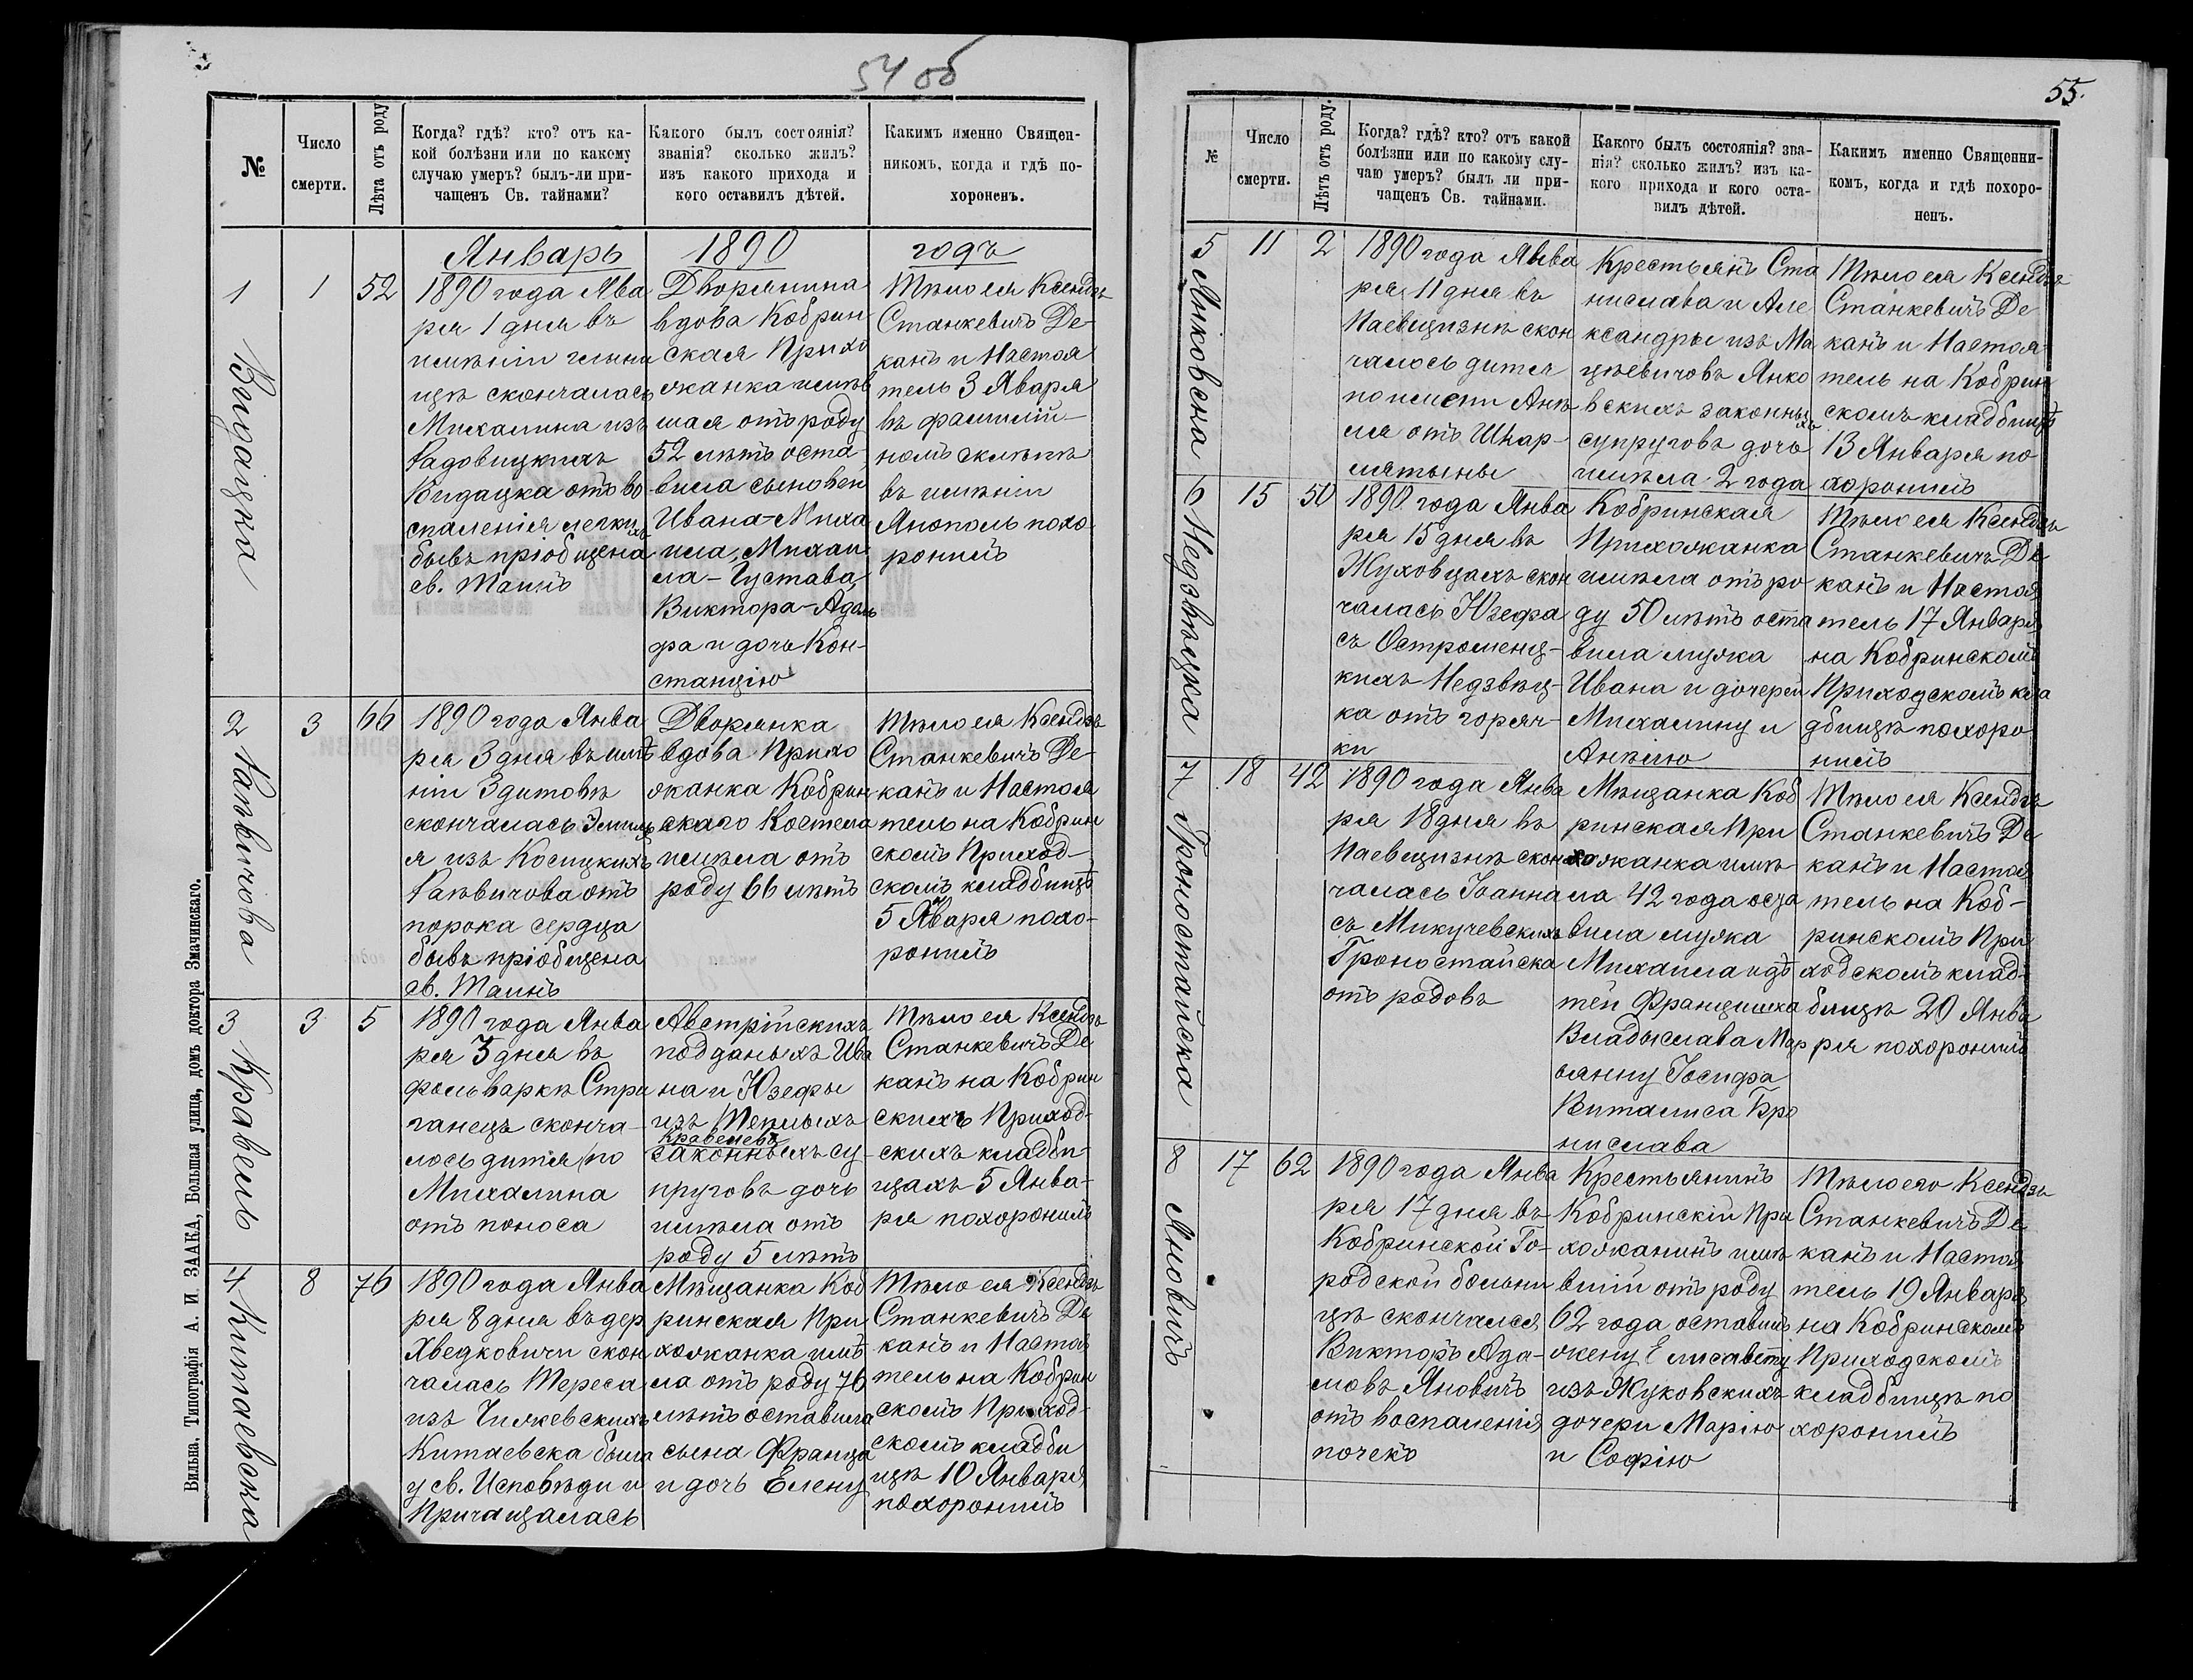 54 об
№
Число
смерти.
Лѣта отъ роду
Когда? гдѣ? кто? отъ ка-
кой болѣзни или по какому
случаю умеръ? былъ-ли при-
чащенъ Св. тайнами?
Какого былъ состоянія?
званія? сколько жилъ?
изъ какого прихода и
кого оставилъ дѣтей.
Какимъ именно Священ-
никомъ, когда и гдѣ по-
хороненъ.
Январь 1890 годъ
1
Видацка
1
52
1890 года Ява
ря 1 дня въ
имѣніи
цѣ скончалась
Михалина изъ
Радовицкихъ
Видацка отъ во
спаленія легкихъ
бывъ пріобщена
св. Таинъ
Дворянина
вдова Кобрин
ская Прихо
жанка имѣв
шая отъ роду
52 лѣтъ оста
вила сыновей
Ивана-Миха
ила, Михаи
ла-Густава,
Виктора-Адоль
фа и дочь Кон-
станцію
Тѣло ея Ксендзъ
Станкевичъ Де-
канъ и Настоя
тель 3 Яваря
въ фамилій-
номъ склѣпѣ
въ имѣніи
Янополь похо-
ронилъ
2
Ракѣвичова
3
66
1890 года Янва
ря 3 дня въ имѣ
ніи Здитовѣ
скончалась Эмилі
я изъ Косицкихъ
Ракѣвичова отъ
порока сердца
бывъ пріобщена
св. Таинъ
Дворянка
вдова Прихо
жанка Кобрин
скаго Костела
имѣла отъ
роду 66 лѣтъ
Тѣло ея Ксендзъ
Станкевичъ Де-
канъ и Настоя
тель на Кобрин
скомъ Приход-
скомъ кладбищѣ
5 Января похо-
ронилъ
3
Кравель
3
5
1890 года Янва
ря 3 дня въ
фольваркѣ Стри
ганецъ сконча-
лось дитя по
Михалина
отъ поноса
Австрійскихъ
подданыхъ Ива
на и Юзефы
изъ Теплыхъ
Кравелевъ
законныхъ су-
пруговъ дочь
имѣла отъ
роду 5 лѣтъ
Тѣло ея Ксендзъ
Станкевичъ Де
канъ на Кобрин
скихъ Приход-
скихъ кладби-
щахъ 5 Янва-
ря похоронилъ
4
Китаевска
8
76
1890 года Янва
ря 8 дня въ дер
Хведковичи скон
чалась Тереса
изъ Чижевскихъ
Китаевска была
у св. Исповѣди и
Причащалась
Мѣщанка Коб
ринская При
хожанка имѣ
ла отъ роду 76
лѣтъ оставила
сына Франца
и дочь Елену
Тѣло ея Ксендзъ
Станкевичъ Де
канъ и Настоя
тель на Кобрин
скомъ Приход-
скомъ кладби
щѣ 10 Января
похоронилъ
Вильна, Типографія А. И. ЗААКА, Большая улица, домъ доктора Змачинскаго.
55.
№
Число
смерти.
Лѣтъ отъ роду.
Когда? гдѣ? кто? отъ какой
болѣзни или по какому слу-
чаю умеръ? былъ ли при-
чащенъ Св. тайнами.
Какого былъ состоянія? зва-
нія? сколько жилъ? изъ ка-
кого прихода и кого оста-
вилъ дѣтей.
Какимъ именно Священни-
комъ, когда и гдѣ похоро-
ненъ.
5
Янковска
11
2
1890 года Янва
ря 11 дня въ
Паевщизнѣ скон
чалось дитя
по имени Анѣ
ля отъ Шкар-
лятыны
Крестьянъ Ста
нислава и Але
ксандры изъ Ма
цѣевичовъ Янко
вскихъ законныхъ
супруговъ дочь
имѣла 2 года
Тѣло ея Ксендзъ
Станкевичъ Де
канъ и Настоя
тель на Кобрин
скомъ кладбищѣ
13 Января по
хоронилъ
6
Недзвѣцка
15
50
1890 года Янва
ря 15 дня въ
Жуховцахъ скон
чалась Юзефа
съ Остроменц-
кихъ Недзвѣц-
ка отъ горяч-
ки
Кобринская
Прихожанка
имѣла отъ ро
ду 50 лѣтъ оста
вила мужа
Ивана и дочерей
Михалину и
Анѣлю
Тѣло ея Ксендзъ
Станкевичъ Де
канъ и Настоя
тель 17 Января
на Кобринскомъ
Приходскомъ кла
дбищѣ похоро
нилъ
7
Гроностайска
18
42
1890 года Янва
ря 18 дня въ
Паевщизнѣ скон
чалась Іоанна
съ Микучевскихъ
Гроностайска
отъ родовъ
Мѣщанка Коб
ринская При
хожанка имѣ-
ла 42 года оста
вила мужа
Михаила и дѣ
тей Францишка
Владыслава Мар
іанну Іосифа
Виталиса Бро
нислава
Тѣло ея Ксендзъ
Станкевичъ Де
канъ и Настоя
тель на Коб-
ринскомъ При
ходскомъ клад-
бищѣ 20 Янва
ря похоронилъ
8
Яновичъ
17
62
1890 года Янва
ря 17 дня въ
Кобринской Го-
родской больни
цѣ скончался
Викторъ Ада-
мовъ Яновичъ
отъ воспаленія
почекъ
Крестьянинъ
Кобринскій При
хожанинъ имѣ
вшій отъ роду
62 года оставилъ
жену Елисавету
изъ Жуковскихъ
дочери Марію
и Софію
Тѣло его Ксендзъ
Станкевичъ Де
канъ и Настоя
тель 19 Января
на Кобринскомъ
Приходскомъ
кладбищѣ по
хоронилъ